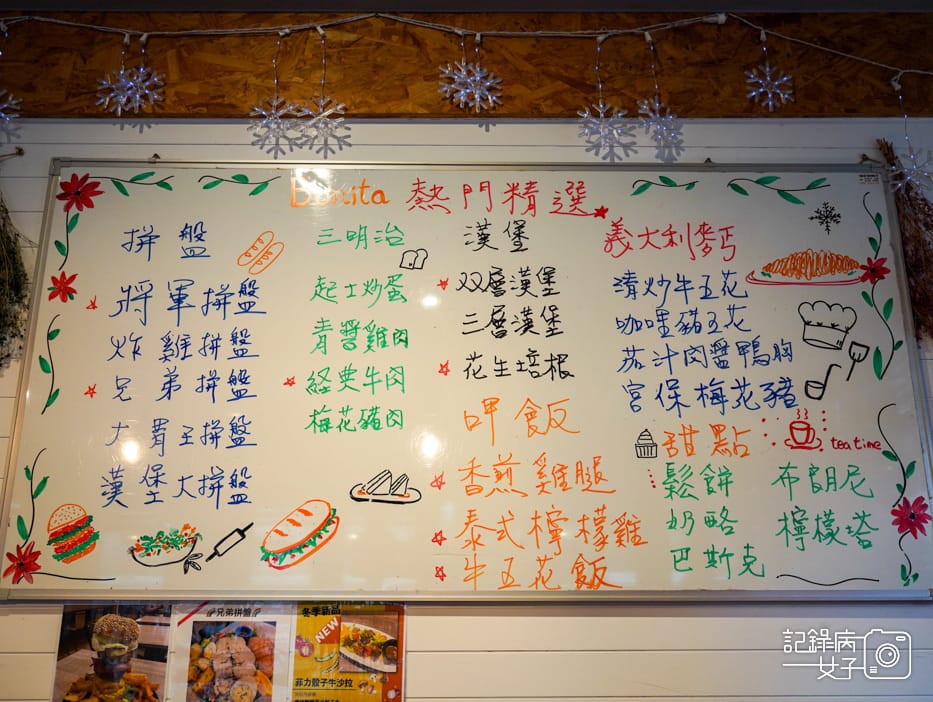 Bonita 熱門精選
拼盤
將軍拼盤
炸雞拼盤
兄弟拼盤
大胃王拼盤
漢堡大拼盤
三明治
起士炒蛋
青醬雞肉
経典牛肉
梅花豬肉
漢堡
双層漢堡
三層漢堡
花生培根
呷飯
香煎雞腿
泰式檸檬雞
牛五花飯
義大利麥丐
清炒牛五花
咖哩豬五花
茄汁肉醬鴨胸
宮保梅花豬
甜點
tea time
鬆餅
奶酪
巴斯克
布朗尼
檸檬塔
兄弟拼盤
冬季新品
NEW
菲力骰子牛沙拉
記錄病
女子